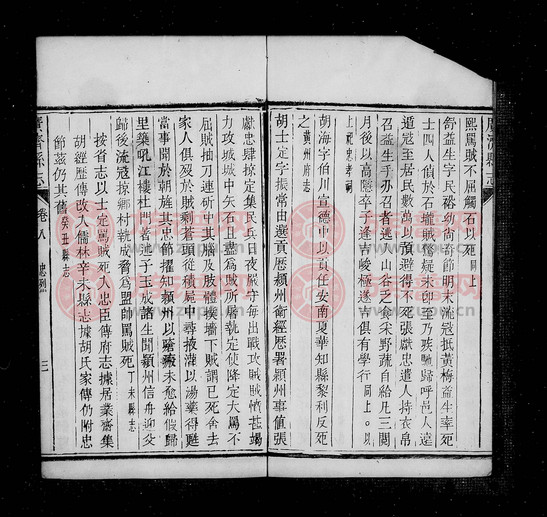 廣濟縣志
熙罵賊不屈觸石以死同上
舒益生字民裕幼尚奇節明末流寇抵黃梅益生率死
士四人偵於石壠賊驚疑未卽至乃殘馳歸呼邑人遠
遁寇至居民數萬以預避得不死張獻忠遣人持衣帛
召益生手刃召者遁入山谷之食宋野蔬自給凡三閱
月後以高隱卒子逢吉峻極遂吉俱有學行同上。以
上祀忠孝祠
胡海字伯川宣德中以貢任安南夏華知縣黎利反死
之黃州府志
胡士定字振常由選貢歷潁州衛經歷署潁州事值張
獻忠肆掠定集民兵日夜嚴守每出戰攻賊賊憤甚竭
力攻城城中矢石且盡爲賊所屠執定使降定大罵不
屈賊抽刀連斫中其腦及肢體擲墻下賊謂已死舍去
家人俱歿於賊剩蒼頭從積屍中尋得掖灌以湯藥得甦
當事聞於朝旌其忠節擢知潁州以瘡瘢未愈給假歸
里築吼江樓杜門著述子玉成諸生聞潁州信舟迎父
歸後流寇掠鄉村執成脅爲盟帥罵賊死丁未縣志
按省志以士定罵賊死入忠臣傳府志據居業齋集
胡經歷傳改入儒林辛未縣志據胡氏家傳仍附忠
節茲仍其舊癸丑縣志
廣濟縣志
卷八
忠烈
三